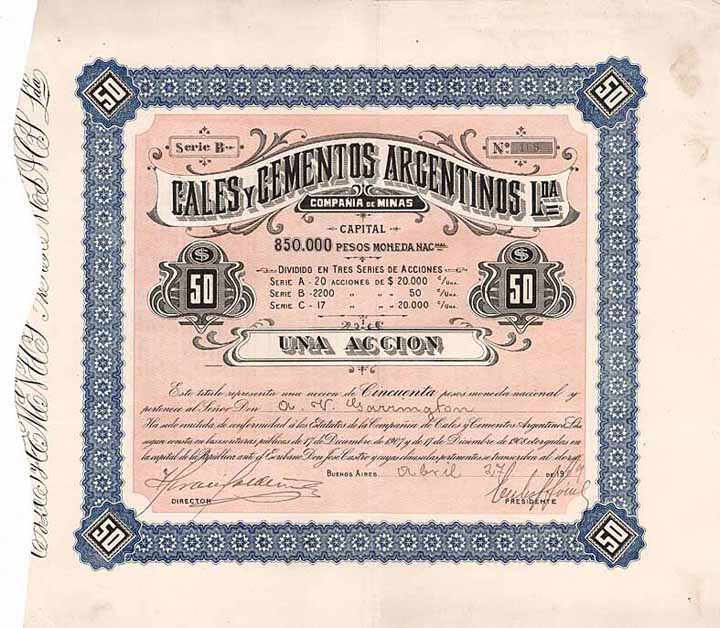 50
50
Serie B
Nº
CALES Y CEMENTOS ARGENTINOS LDA
COMPAÑIA DE MINAS
CAPITAL
850.000 PESOS MONEDA NACNAL
$
50
$
50
DIVIDIDO EN TRES SERIES DE ACCIONES
SERIE A - 20 ACCIONES DE $ 20.000 C/UNA.
SERIE B - 2200 " " " 50 C/UNA.
SERIE C - 17 " " " 20.000 C/UNA.
UNA ACCION
Este titulo representa una accion de Cincuenta pesos moneda nacional y
pertenece al Señor Don A. V. Garrington
Ha sido emitida de conformidad á los Estatutos de la Compañia de Cales y Cementos Argentinos Lda
segun consta en las escrituras públicas de 17 de Diciembre de 1907 y de 17 de Diciembre de 1908 otorgadas en
la capital de la República ante el Escribano Don José Castro y cuyas cláusulas pertinentes se transcriben al dorso
BUENOS AIRES Abril 27 DE 19
DIRECTOR
PRESIDENTE
50
50